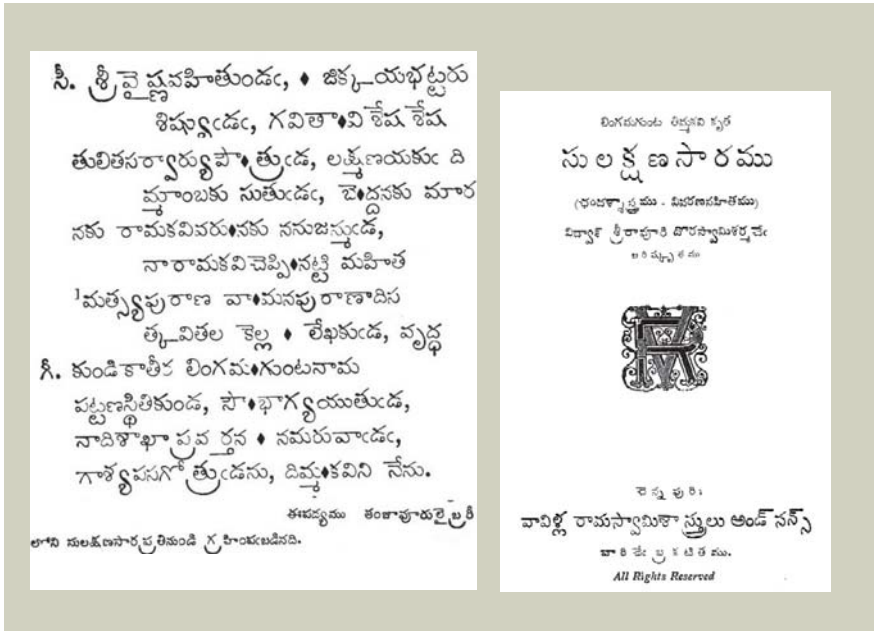 సీ. శ్రీవైష్ణవహితుండఁ, ♦ జిక్కయభట్టరు
శిష్యుఁడఁ, గవితా♦విశేష శేష
తులితసర్వార్యుపౌ♦త్రుఁడ, లక్ష్మణయకుఁ ది
మ్మాంబకు సుతుఁడఁ, బె♦ద్దనకు మార
నకు రామకవివరు♦నకు ననుజన్ముఁడ,
నారామకవిచెప్పి♦నట్టి మహిత
1మత్స్యపురాణ వా♦మనపురాణాదిస
త్కవితల కెల్ల ♦ లేఖకుఁడ, వృద్ధ
గీ. కుండికాతీర లింగమ♦గుంటనామ
పట్టణస్థితికుండ, సౌ♦భాగ్యయుతుఁడ,
నాదిశాఖాప్రవర్తన ♦ నమరువాఁడఁ,
గాశ్యపసగోత్రుఁడను, దిమ్మ♦కవిని నేను.
ఈపద్యము తంజావూరులైబ్రరీ
లోని సులక్షణసారప్రతినుండి గ్రహింపఁబడినది.
లింగమగుంట తిమ్మకవి కృత
సులక్షణసారము
(ఛందశ్శాస్త్రము - వివరణసహితము)
విద్వాన్ శ్రీరాపూరి దొరస్వామిశర్మచేఁ
బరిష్కృతము
చెన్నపురి:
వావిళ్ల రామస్వామిశాస్త్రులు అండ్ సన్స్
వారిచేఁ బ్రకటితము.
All Rights Reserved